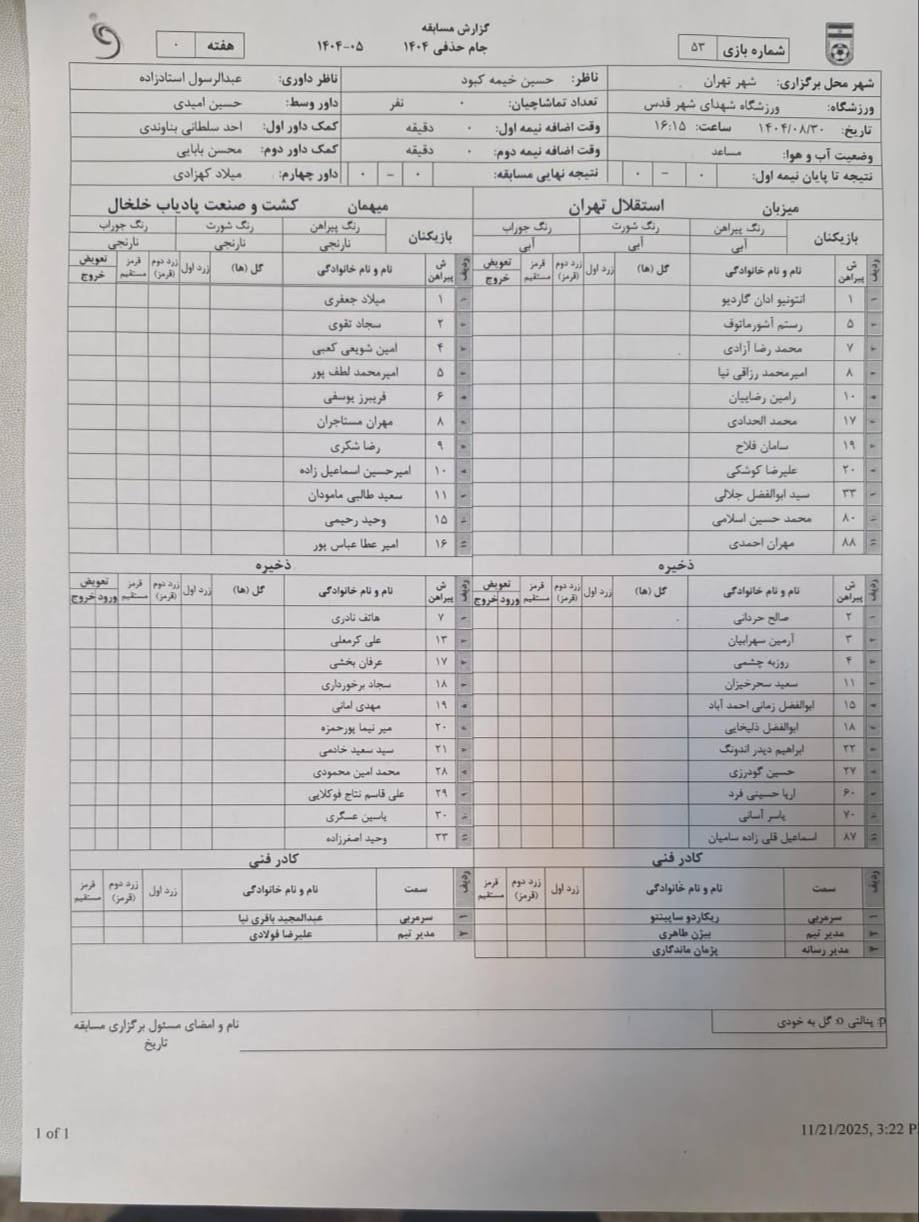 گزارش مسابقه
جام حذفی ۱۴۰۴ ۱۴۰۴-۰۵
شماره بازی ۵۳
هفته ۰
شهر محل برگزاری: شهر تهران ناظر: حسین خیمه کبود ناظر داوری: عبدالرسول استادزاده
ورزشگاه: ورزشگاه شهدای شهر قدس تعداد تماشاچیان: ۰ نفر داور وسط: حسین امیدی
تاریخ: ۱۴۰۴/۰۸/۳۰ ساعت: ۱۶:۱۵ وقت اضافه نیمه اول: ۰ دقیقه کمک داور اول: احد سلطانی بناوندی
وضعیت آب و هوا: مساعد وقت اضافه نیمه دوم: ۰ دقیقه کمک داور دوم: محسن بابایی
نتیجه تا پایان نیمه اول: ۰ - ۰ نتیجه نهایی مسابقه: ۰ - ۰ داور چهارم: میلاد کهزادی
میزبان استقلال تهران
بازیکنان رنگ پیراهن رنگ شورت رنگ جوراب
آبی آبی آبی
ردیف ش پیراهن نام و نام خانوادگی گل (ها) زرد اول زرد دوم (قرمز) قرمز مستقیم تعویض خروج
۱ انتونیو ادان گاردیو
۵ رستم آشورماتوف
۷ محمد رضا آزادی
۸ امیرمحمد رزاقی نیا
۱۰ رامین رضاییان
۱۷ محمد الحدادی
۱۹ سامان فلاح
۲۰ علیرضا کوشکی
۳۳ سید ابوالفضل جلالی
۸۰ محمد حسین اسلامی
۸۸ مهران احمدی
ذخیره
ردیف ش پیراهن نام و نام خانوادگی گل (ها) زرد اول زرد دوم (قرمز) قرمز مستقیم تعویض ورود خروج
۲ صالح حردانی
۳ آرمین سهرابیان
۴ روزبه چشمی
۱۱ سعید سحرخیزان
۱۵ ابوالفضل زمانی احمد آباد
۱۸ ابوالفضل ذلیخایی
۲۲ ابراهیم دیدر اندونگ
۲۷ حسین گودرزی
۶۰ اریا حسینی فرد
۷۰ یاسر آسانی
۸۷ اسماعیل قلی زاده سامیان
کادر فنی
ردیف سمت نام و نام خانوادگی زرد اول زرد دوم (قرمز) قرمز مستقیم
۱ سرمربی ریکاردو ساپینتو
۲ مدیر تیم بیژن طاهری
۳ مدیر رسانه پژمان ماندگاری
میهمان کشت و صنعت پادیاب خلخال
بازیکنان رنگ پیراهن رنگ شورت رنگ جوراب
نارنجی نارنجی نارنجی
ردیف ش پیراهن نام و نام خانوادگی گل (ها) زرد اول زرد دوم (قرمز) قرمز مستقیم تعویض خروج
۱ میلاد جعفری
۲ سجاد تقوی
۴ امین شویعی کعبی
۵ امیرمحمد لطف پور
۶ فریبرز یوسفی
۸ مهران مستاجران
۹ رضا شکری
۱۰ امیرحسین اسماعیل زاده
۱۱ سعید طالبی مامودان
۱۵ وحید رحیمی
۱۶ امیر عطا عباس پور
ذخیره
ردیف ش پیراهن نام و نام خانوادگی گل (ها) زرد اول زرد دوم (قرمز) قرمز مستقیم تعویض ورود خروج
۷ هاتف نادری
۱۳ علی کرمعلی
۱۷ عرفان بخشی
۱۸ سجاد برخورداری
۱۹ مهدی امانی
۲۰ میر نیما پورحمزه
۲۱ سید سعید خادمی
۲۸ محمد امین محمودی
۲۹ علی قاسم نتاج فوکلایی
۳۰ یاسین عسگری
۳۳ وحید اصغرزاده
کادر فنی
ردیف سمت نام و نام خانوادگی زرد اول زرد دوم (قرمز) قرمز مستقیم
۱ سرمربی عبدالمجید باقری نیا
۲ مدیر تیم علیرضا فولادی
p: پنالتی o: گل به خودی
نام و امضای مسئول برگزاری مسابقه
تاریخ
1 of 1
11/21/2025, 3:22 P